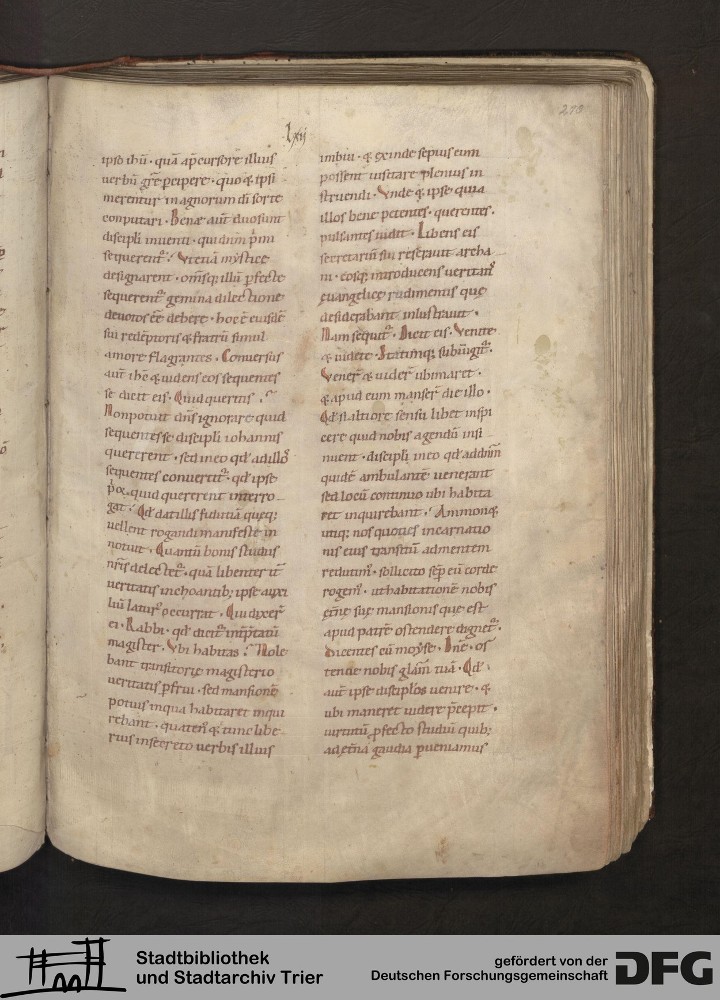 lxii
ipso ihū · quā ap̄cursore illius
uerbū gr̄e p̄cipere · quo &. ipsi
merentur in agnorum dī sorte
conputari · Bene aut̄ duo sunt
discipli inuenti · qui dn̄m p̄mi
sequerent᷑ · Vt etiā mystice
designarent · om̄sq; illū p̄fecte
sequerent᷑ gemina dilectione
deuotos ēē debere · hoc ē eiusdē
sui redēptoris & fratrū simul
amore flagrantes · Conuersus
aut̄ ihc̄ & uidens eos sequentes
se dicit eis · Quid queritis ·
Non potuit dn̄s ignorare quid
sequentes se discipli iohannis
quererent · sed in eo qd̄ ad illos
sequentes conuertit᷑ · qd̄ ipse
quid quererent interro
gat · Qd̄ dat illis fidutiā queq;
uellent rogandi manifeste in
notuit · Quantū bonis studiis
nr̄is delectet᷑ · quā libenter it̄
ueritatis inchoantib; ipse auxi
liū laturꝰ occurrat · Qui dixer̄
ei · Rabbi · qd̄ dicit᷑ int̄p̄tatū
magister · Vbi habitas · Nole
bant transitorie magisterio
ueritatis p̄frui · sed mansionē
potius in qua habitaret inqui
rebant · quatenꝰ & tunc libe
rius in secreto uerbis illius
imbui · & exinde sepius eum
possent uisitare plenius in
struendi · Vnde & ipse quia
illos bene petentes · querentes ·
pulsantes uidit · Libens eis
secretariū sui reserauit archa
ni · eosq; introducens ueritatꝰ
euangelice rudimentis que
desiderabant inlustrauit ·
Nam sequit᷑ · Dicit eis · Venite
& uidete · Statimq; subiūgit᷑ ·
Vener̄ & uider̄ ubi maret ·
& apud eum manser̄ die illo ·
Qd̄ si altiore sensu libet inspi
cere quid nobis agendū insi
nuent · discipli in eo qd̄ ad dn̄m
quidē ambulantē uenerant
sed locū continuo ubi habita
ret inquirebant · Ammonēt
utiq; nos quoties incarnatio
nis eius transitū ad mentem
reducim᷑ · sollicito sēp eū corde
rogem᷑ · ut habitationē nobis
et̄ne sue mansionis que est
apud patrē ostendere dignet᷑ ·
Dicentes cū moyse · Dn̄e · os
tende nobis glām tuā · Qd̄
aut̄ ipse disciplos uenire · &
ubi maneret uidere p̄cepit ·
uirtutū p̄fecto studiū quib;
ad et̄na gaudia p̄ueniamus
Stadtbibliothek
und Stadtarchiv Trier
gefördert von der
Deutschen Forschungsgemeinschaft
DFG